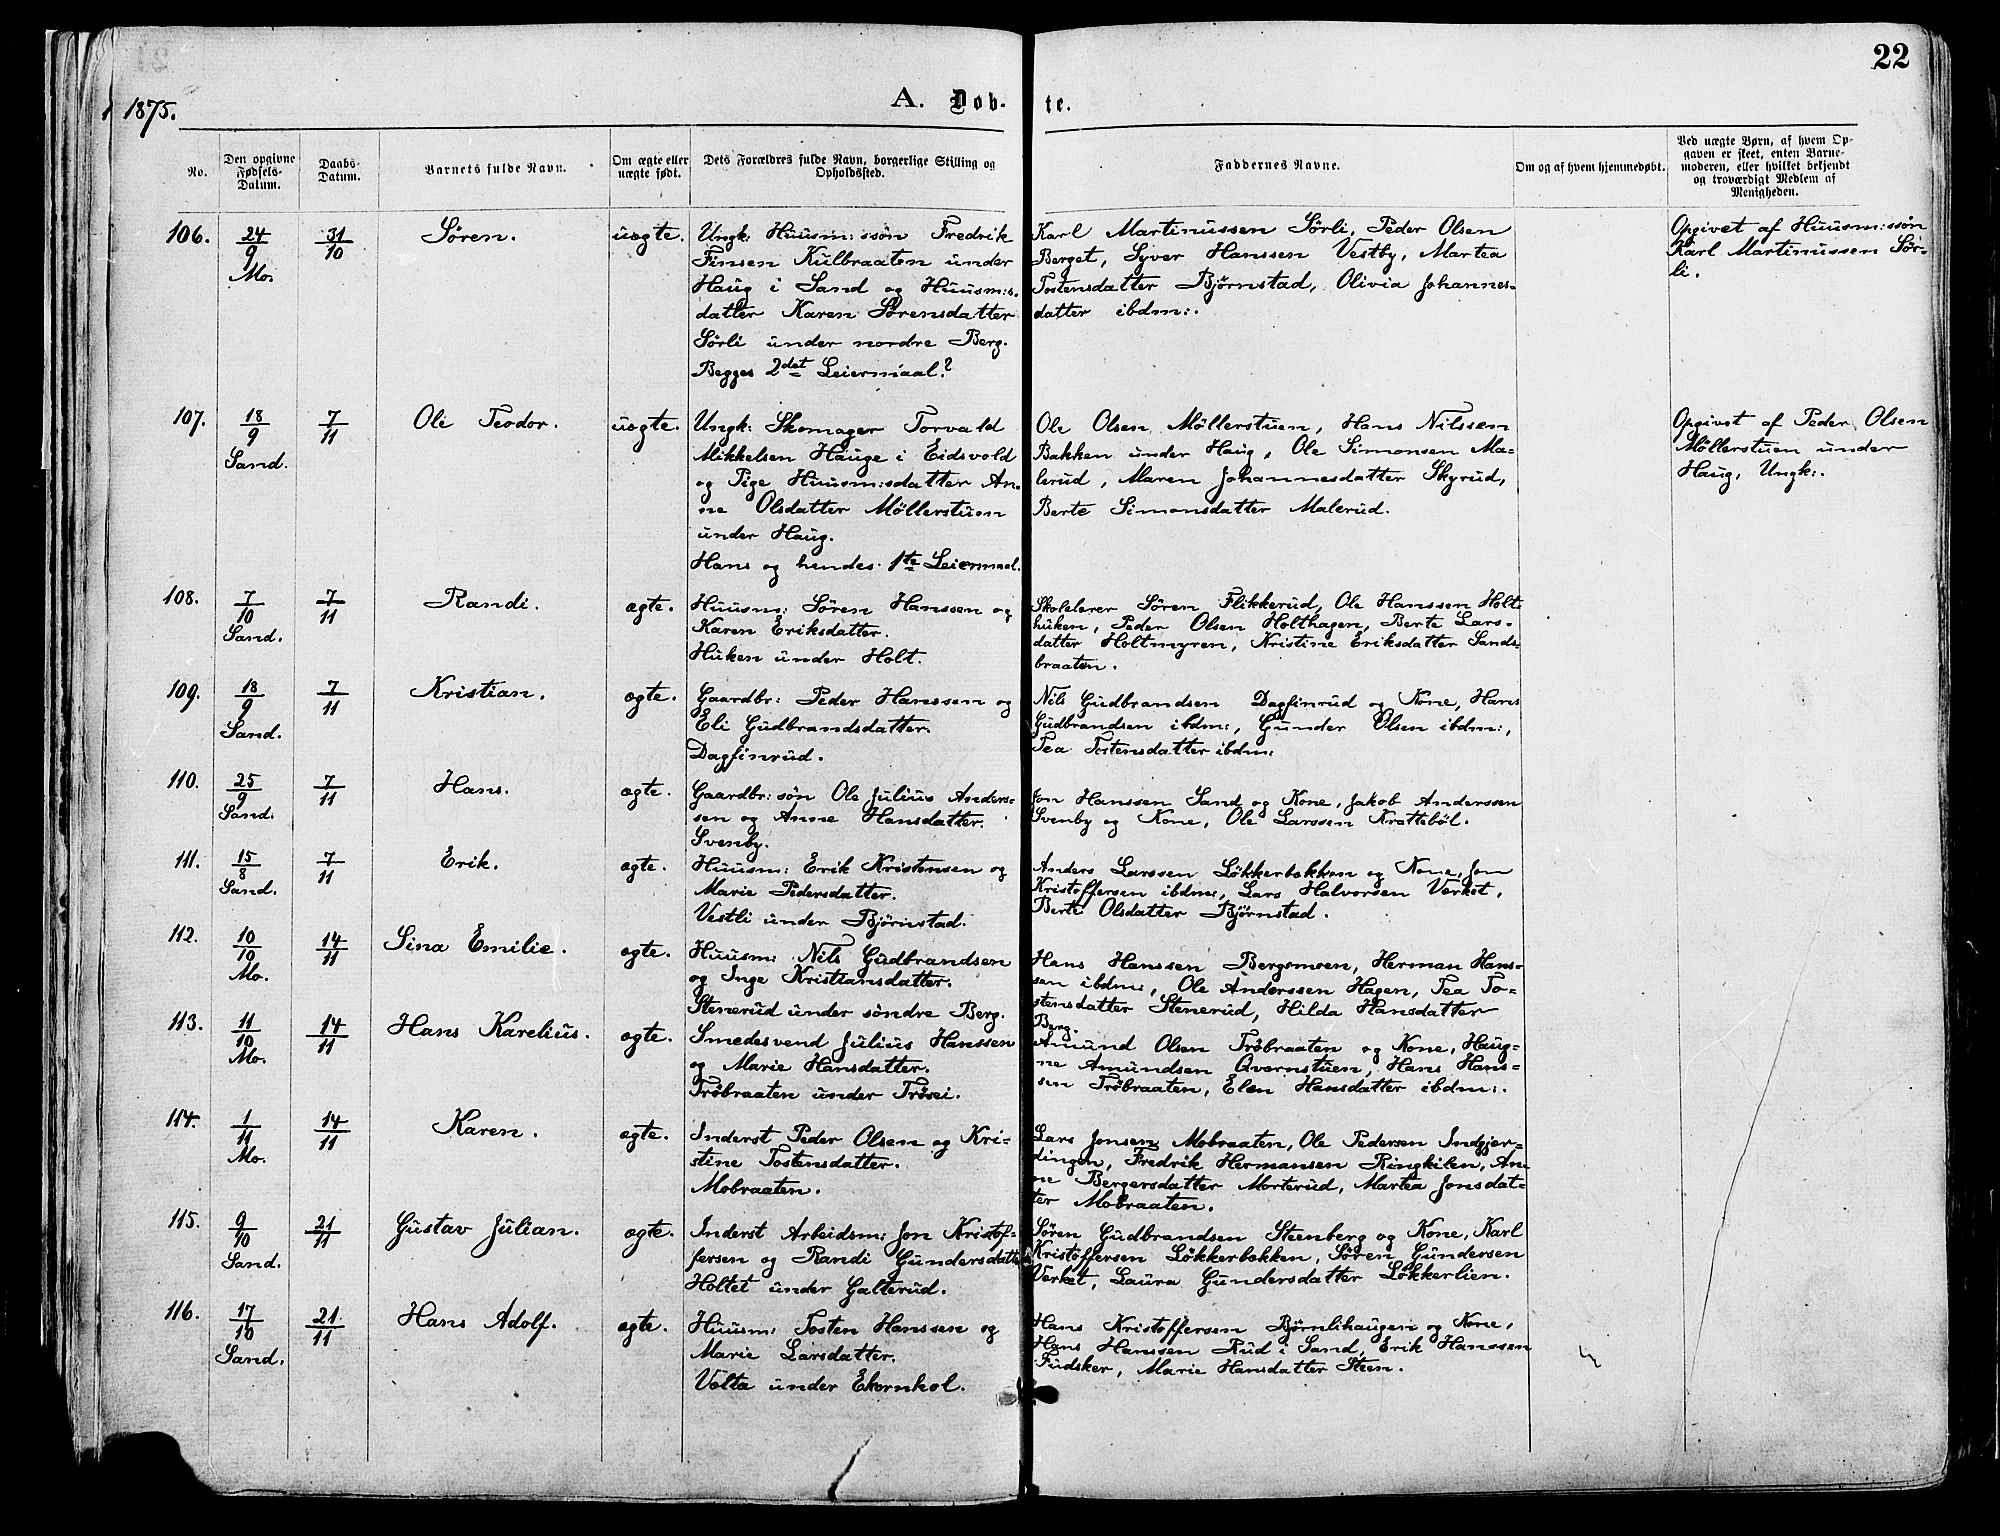 22
1875.
A. Døb-
te.
No.
Den opgivne Fødsels-Datum.
Daabs-Datum.
Barnets fulde Navn.
Om ægte eller uægte født.
Dets Forældres fulde Navn, borgerlige Stilling og Opholdssted.
Faddernes Navne.
Om og af hvem hjemmedøbt.
Ved uægte Børn, af hvem Op-
gaven er skeet, enten Barne-
moderen, eller hvilket bekjendt
og troværdigt Medlem af
Menigheden.
106.
24/9 Mo.
31/10
Søren.
uægte.
Ungk: Huusm: søn Fredrik
Finsen Kulbraaten under
Haug i Sand og Huusm:s.
datter Karen Sørensdatter
Sörli under nordre Berg.
Begges 2det Leiermaal?
Karl Martinussen Sörli, Peder Olsen
Berget, Syver Hanssen Vestby, Martea
Tostensdatter Björnstad, Olivia Johannes-
datter ibdm:.
Opgivet af Huusm:ssøn
Karl Martinussen Sör-
li.
107.
18/9 Sand.
7/11
Ole Teodor.
uægte.
Ungk: Skomager Torvald
Mikkelsen Hauge i Eidsvold
og Pige Huusm:sdatter An-
ne Olsdatter Möllerstuen
under Haug.
Hans og hendes 1ste Leiermaal.
Ole Olsen Möllerstuen, Hans Nilssen
Bakken under Haug, Ole Simonsen Ma-
lerud, Maren Johannesdatter Skyrud,
Berte Simonsdatter Malerud.
Opgivet af Peder Olsen
Möllerstuen under
Haug, Ungk:.
108.
7/10 Sand.
7/11
Randi.
ægte.
Huusm: Sören Hanssen og
Karen Eriksdatter.
Huken under Holt.
Skolelærer Sören Flikkerud, Ole Hanssen Holt-
huken, Peder Olsen Holthagen, Berte Lars-
datter Holtmyren, Kristine Eriksdatter Sands-
braaten.
109.
18/9 Sand.
7/11
Kristian.
ægte.
Gaardbr: Peder Hanssen og
Eli Gudbrandsdatter.
Dagfinrud.
Nils Gudbrandsen Dagfinrud og Kone, Hans
Gudbrandsen ibdm:, Gunder Olsen ibdm:,
Tea Tostensdatter ibdm:
110.
25/9 Sand.
7/11
Hans.
ægte.
Gaardbr: søn Ole Julius Anders-
sen og Anne Hansdatter.
Svenby.
Jon Hanssen Sand og Kone, Jakob Anderssen
Svenby og Kone, Ole Larssen Krattebøl.
111.
15/8 Sand.
7/11
Erik.
ægte.
Huusm: Erik Kristensen og
Marie Pedersdatter.
Vestli under Björnstad.
Anders Larssen Lökkerbakken og Kone, Jon
Kristoffersen ibdm:, Lars Halvorsen Værket,
Berte Olsdatter Björnstad.
112.
10/10 Mo.
14/11
Sina Emilie.
ægte.
Huusm: Nils Gudbrandsen
og Inge Kristiansdatter.
Stenerud under søndre Berg.
Hans Hanssen Bergsmoen, Herman Hans-
sen ibdm:, Ole Anderssen Hagen, Tea To-
stensdatter Stenerud, Hilda Hansdatter
Berg.
113.
11/10 Mo.
14/11
Hans Karelius.
ægte.
Smedesvend Julius Hanssen
og Marie Hansdatter.
Tröbraaten under Trösei.
Amund Olsen Tröbraaten og Kone, Haag-
ne Amundsen Qvernstuen, Hans Hans-
sen Tröbraaten, Elen Hansdatter ibdm:.
114.
1/11 Mo.
14/11
Karen.
ægte.
Inderst Peder Olsen og Kri-
stine Tostensdatter.
Mobraaten.
Lars Jonsen Mobraaten, Ole Pedersen Indgjer-
dingen, Fredrik Hermansen Ringkilen, An-
ne Bergersdatter Morterud, Martea Jonsdat-
ter Mobraaten.
115.
9/10 Sand.
21/11
Gustav Julian.
ægte.
Inderst Arbeidsm: Jon Kristof-
fersen og Randi Gundersdatter
Holtet under Galterud.
Søren Gudbrandsen Steenberg og Kone, Karl
Kristoffersen Lökkerbakken, Sören Gundersen
Værket, Laura Gundersdatter Lökkerlien.
116.
17/10 Sand.
21/11
Hans Adolf.
ægte.
Huusm: Tosten Hanssen og
Marie Larsdatter.
Volta under Ekornhol.
Hans Kristoffersen Björnlihaugen og Kone,
Hans Hanssen Rud i Sand, Erik Hanssen
Fudsker, Marie Hansdatter Steen.